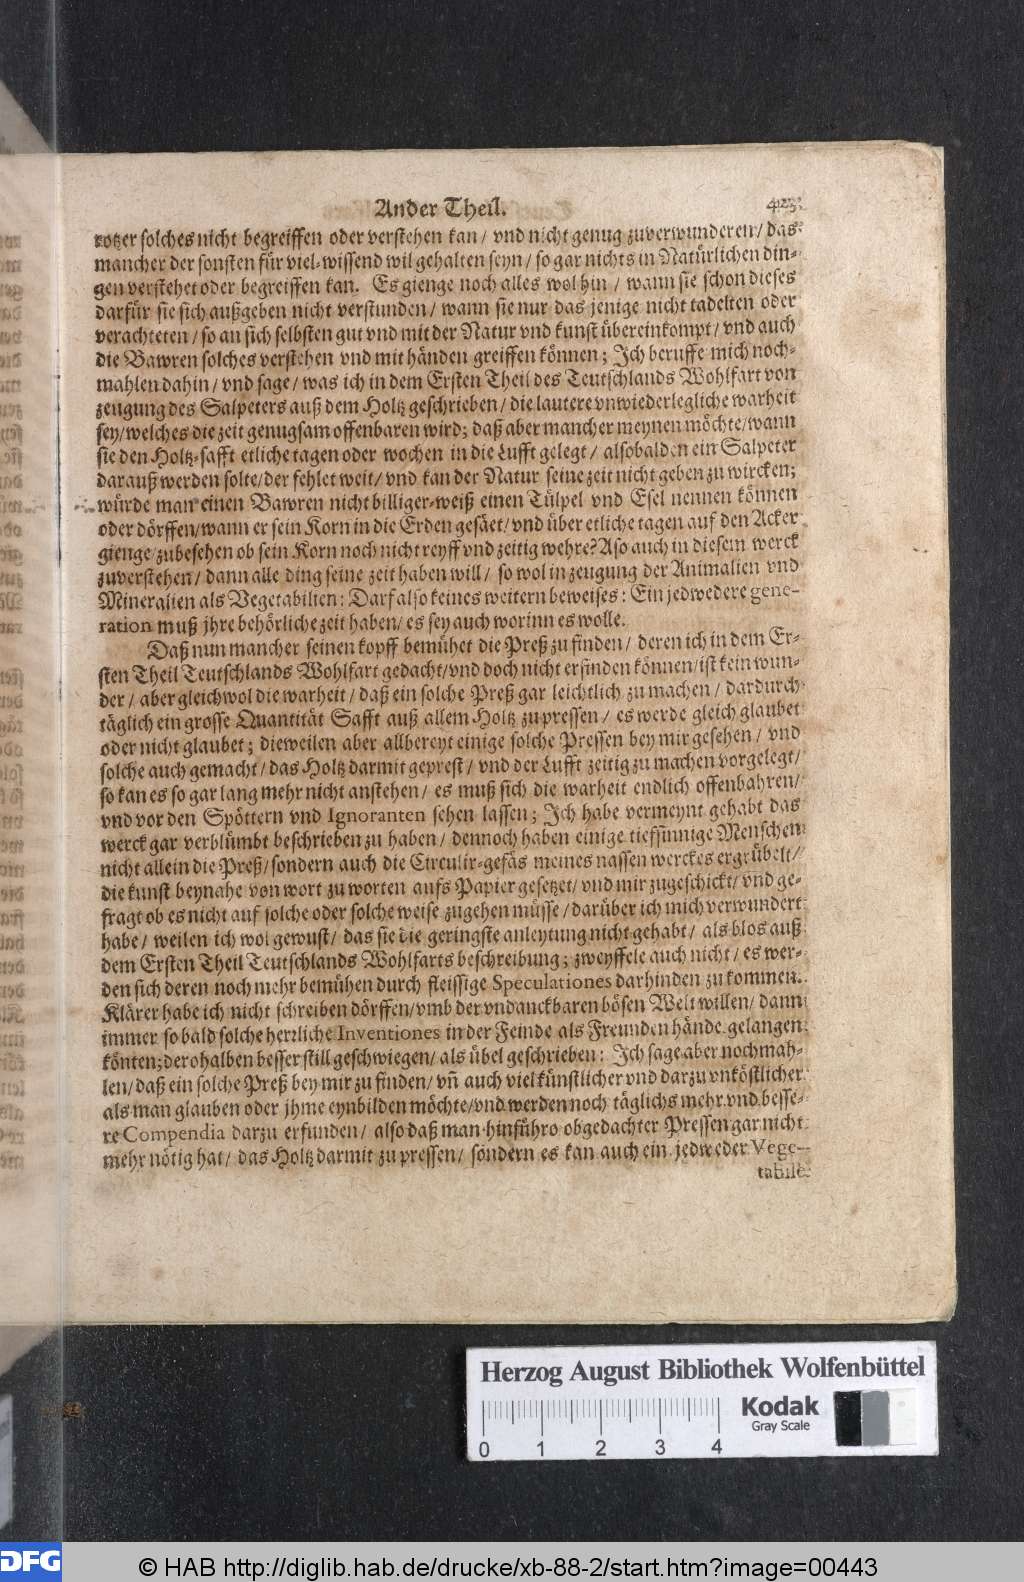 Ander Theil.
425
rotzer solches nicht begreiffen oder verstehen kan / vnd nicht genug zuverwunderen / das
mancher der sonsten für viel-wissend wil gehalten seyn / so gar nichts in Natürlichen din-
gen verstehet oder begreiffen kan. Es gienge noch alles wol hin / wann sie schon dieses
darfür sie sich außgeben nicht verstunden / wann sie nur das jenige nicht tadelten oder
verachteten / so an sich selbsten gut vnd mit der Natur vnd kunst übereinkompt / vnd auch
die Bawren solches verstehen vnd mit händen greiffen können; Ich beruffe mich noch-
mahlen dahin / vnd sage / was ich in dem Ersten Theil des Teutschlands Wohlfart von
zeugung des Salpeters auß dem Holtz geschrieben / die lautere vnwiederlegliche warheit
sey / welches die zeit genugsam offenbaren wird; daß aber mancher meynen möchte / wann
sie den Holtz-safft etliche tagen oder wochen in die Lufft gelegt / alsobalden ein Salpeter
darauß werden solte / der fehlet weit / vnd kan der Natur seine zeit nicht geben zu wircken;
würde man einen Bawren nicht billiger-weiß einen Tülpel vnd Esel nennen können
oder dörffen / wann er sein Korn in die Erden gesäet / vnd über etliche tagen auf den Acker
gienge / zubesehen ob sein Korn noch nicht reyff vnd zeitig wehre? Aso auch in diesem werck
zuverstehen / dann alle ding seine zeit haben will / so wol in zeugung der Animalien vnd
Mineralien als Vegetabilien: Darf also keines weitern beweises: Ein jedwedere gene-
ration muß jhre behörliche zeit haben / es sey auch worinn es wolle.
Daß nun mancher seinen kopff bemühet die Preß zu finden / deren ich in dem Er-
sten Theil Teutschlands Wohlfart gedacht / vnd doch nicht erfinden können / ist kein wun-
der / aber gleichwol die warheit / daß ein solche Preß gar leichtlich zu machen / dardurch
täglich ein grosse Quantität Safft auß allem Holtz zu pressen / es werde gleich glaubet
oder nicht glaubet; dieweilen aber allbereyt einige solche Pressen bey mir gesehen / vnd
solche auch gemacht / das Holtz darmit geprest / vnd der Lufft zeitig zu machen vorgelegt /
so kan es so gar lang mehr nicht anstehen / es muß sich die warheit endlich offenbahren /
vnd vor den Spöttern vnd Ignoranten sehen lassen; Ich habe vermeynt gehabt das
werck gar verblümbt beschrieben zu haben / dennoch haben einige tieffsinnige Menschen
nicht allein die Preß / sondern auch die Circulir-gefäs meines nassen werckes ergrübelt /
die kunst beynahe von wort zu worten aufs Papier gesetzet / vnd mir zugeschickt / vnd ge-
fragt ob es nicht auf solche oder solche weise zugehen müsse / darüber ich mich verwundert
habe / weilen ich wol gewust / das sie die geringste anleytung nicht gehabt / als blos auß
dem Ersten Theil Teutschlands Wohlfarts beschreibung; zweyffele auch nicht / es wer-
den sich deren noch mehr bemühen durch fleissige Speculationes darhinden zu kommen.
Klärer habe ich nicht schreiben dörffen / vmb der vndanckbaren bösen Welt willen / dann
immer so bald solche herzliche Inventiones in der Feinde als Freunden hände gelangen
könten; derohalben besser still geschwiegen / als übel geschrieben: Ich sage aber nochmah-
len / daß ein solche Preß bey mir zu finden / vn̄ auch viel künstlicher vnd darzu vnköstlicher
als man glauben oder jhme eynbilden möchte / vnd werden noch täglichs mehr vnd besse-
re Compendia darzu erfunden / also daß man hinführo obgedachter Pressen gar nicht
mehr nötig hat / das Holtz darmit zu pressen / sondern es kan auch ein jedweder Vege-
tabile
Herzog August Bibliothek Wolfenbüttel
0 1 2 3 4
Kodak
Gray Scale
DFG
© HAB http://diglib.hab.de/drucke/xb-88-2/start.htm?image=00443